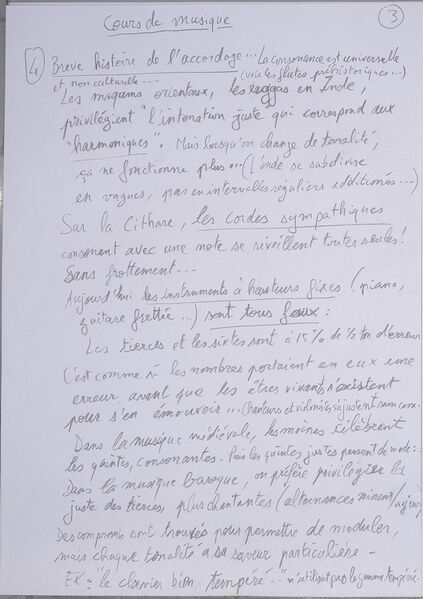 Cours de musique
3
4) Brève histoire de l'accordage... La consonance est universelle
et non culturelle --- (voir les flûtes préhistoriques...)
Les maqams orientaux, les raggas en Inde,
privilégient "l'intonation juste qui correspond aux
"harmoniques". Mais lorsqu'on change de tonalité,
ça ne fonctionne plus... (L'onde se subdivise
en vagues, pas en intervalles réguliers additionés...)
Sur la Cithare, les cordes sympathiques
consonant avec une note se réveillent toutes seules!
Sans frottement---
Aujourd'hui les instruments à hauteurs fixes (piano,
guitare frettée...) sont tous faux:
Les tierces et les sixtes sont à 15% de ½ ton d'erreur
C'est comme si les nombres portaient en eux une
erreur, avant que les êtres vivants n'existent
pour s'en émouvoir... Chanteurs et violonistes s'ajustent sans cesse.
Dans la musique médiévale, les moines célèbrent
les quintes, consonantes. Puis les quintes justes passent de mode:
Dans la musique baroque, on préfère privilégier la
juste des tierces, plus chantantes (alternances mineur/majeur)
Des compromis sont trouvés pour permettre de moduler,
mais chaque tonalité a sa saveur particulière -
EX: "le clavier bien tempéré" n'utilisait pas la gamme tempérée.